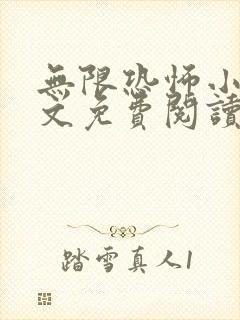 無限恐怖小
文免費閱讀
踏雪真人1